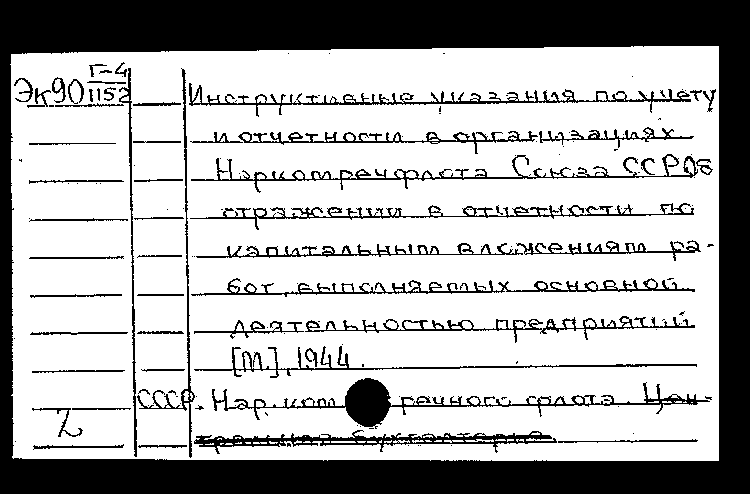 Эк90 Г-4
1152
Инструктивные указания по учету
и отчетности в организациях
Наркомречфлота Союза ССР Об
отражении в отчетности по
капитальным вложениям ра-
бот, выполняемых основной
деятельностью предприятий
[М.], 1944.
СССР. Нар. ком. речного флота. Цен-
тральная бухгалтерия
2